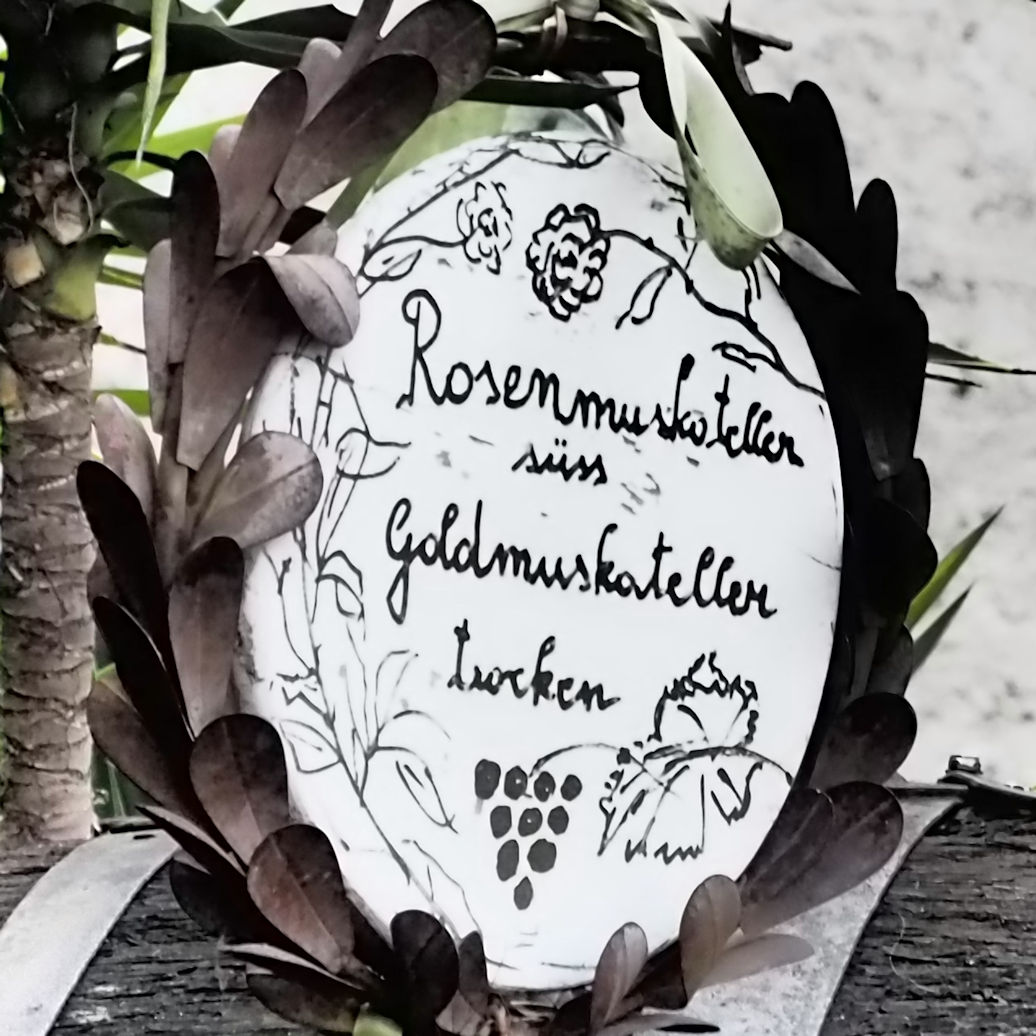 Rosenmuskateller
süss
Goldmuskateller
trocken